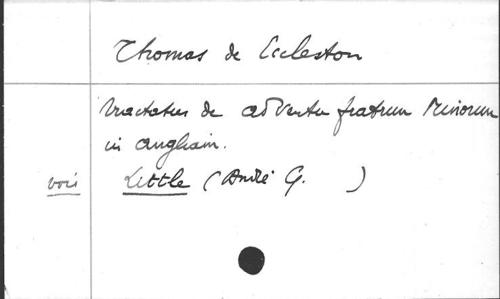 Thomas de Eccleston
Tractatus de adventu fratrum Minorum
in angliam.
vois Little (André G. )